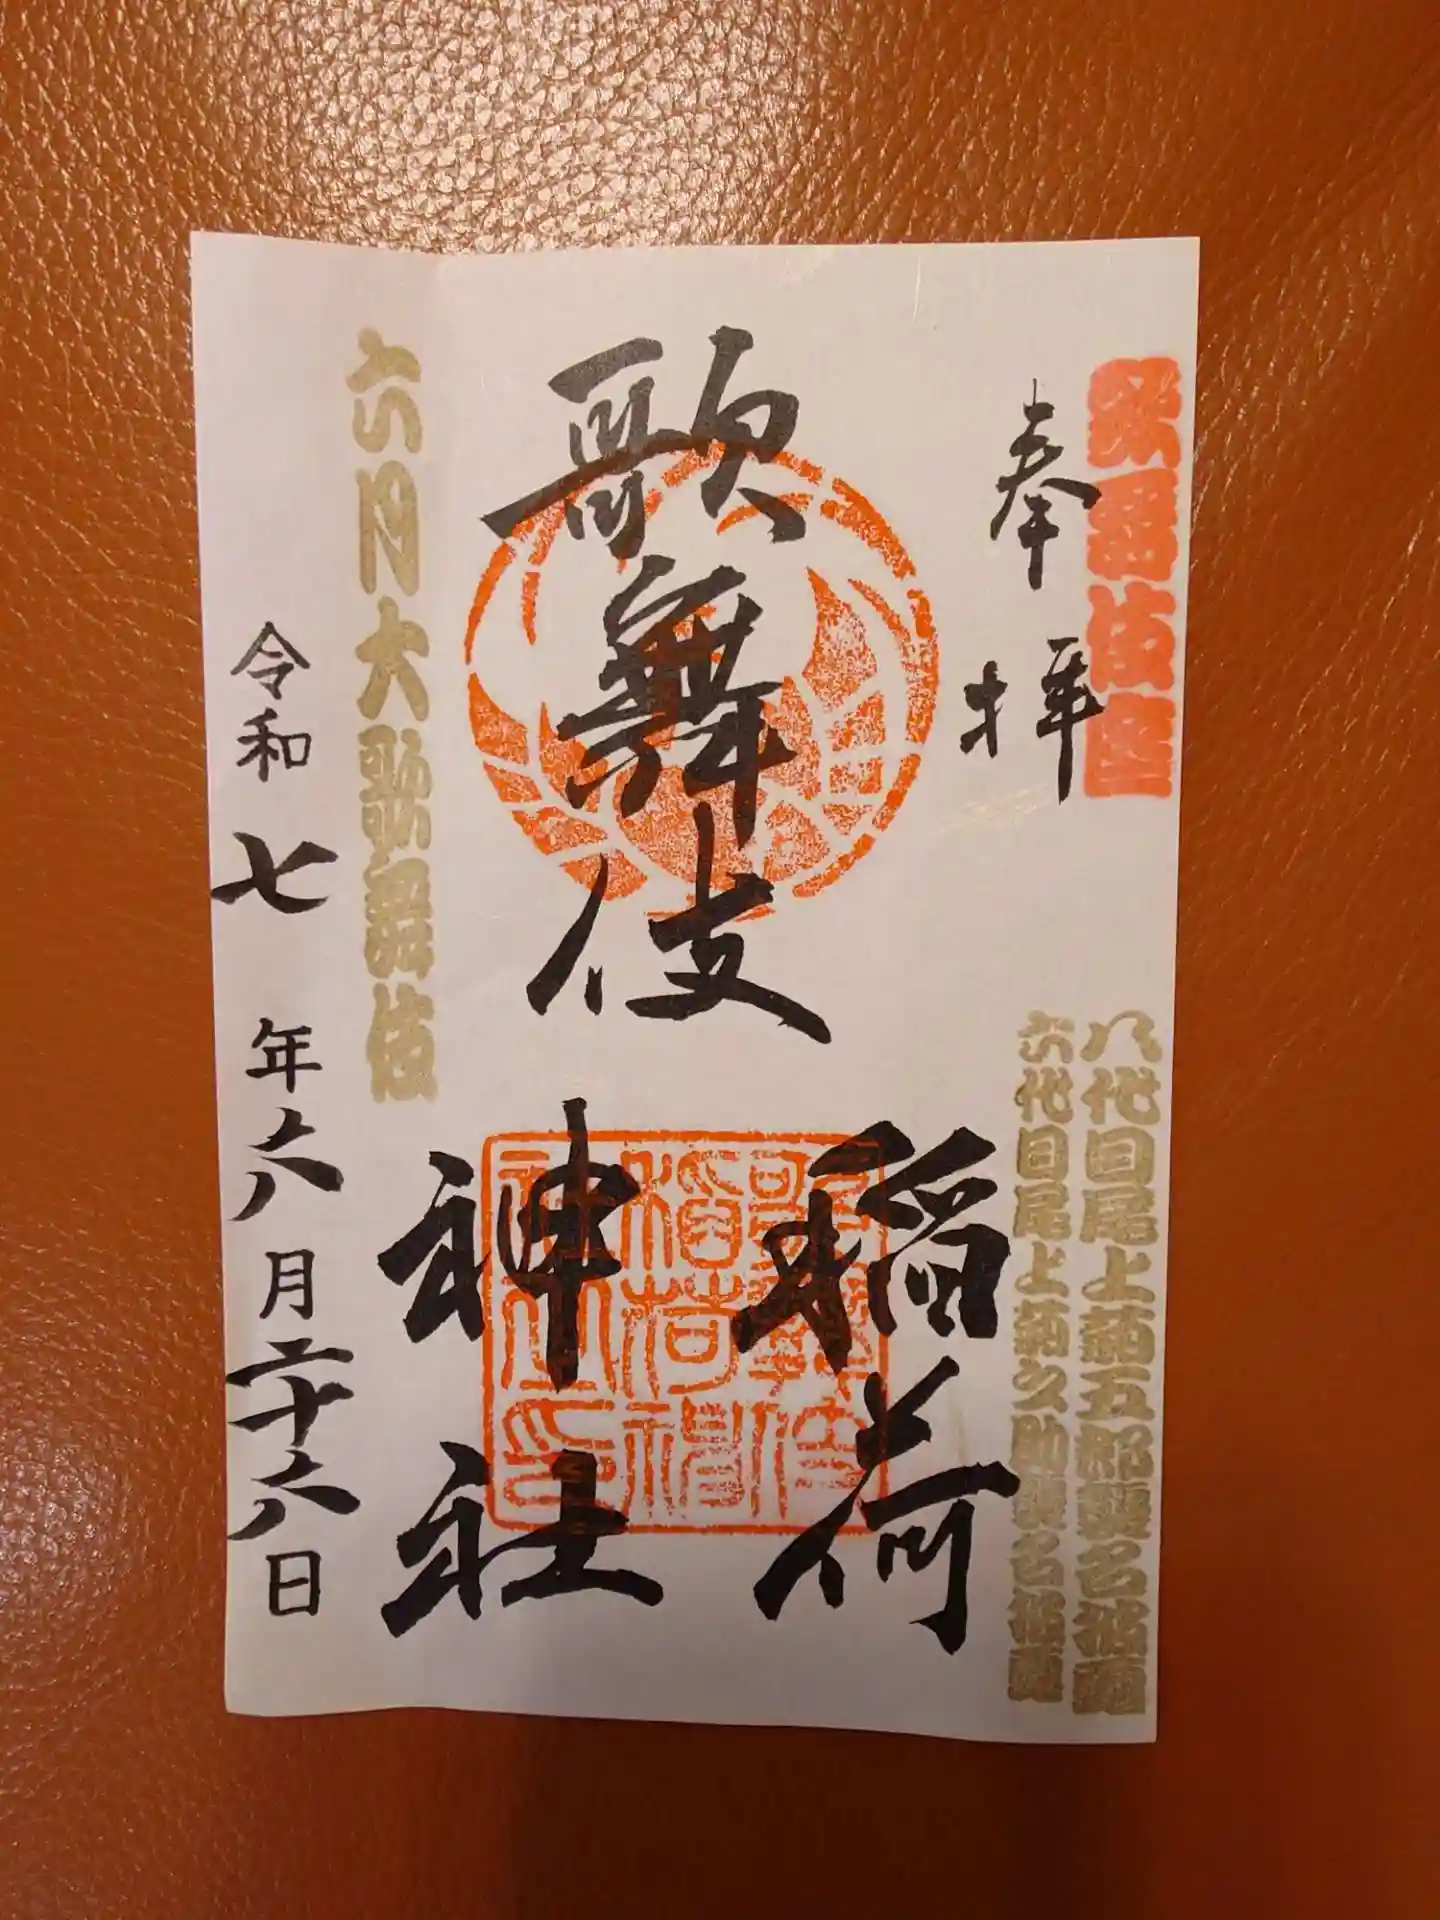 歌舞伎座
奉拝
八代目尾上菊五郎襲名披露
六代目尾上菊之助襲名披露
歌舞伎
稲荷
神社
歌舞伎
稲荷神
社之印
六月大歌舞伎
令和七年六月二十六日